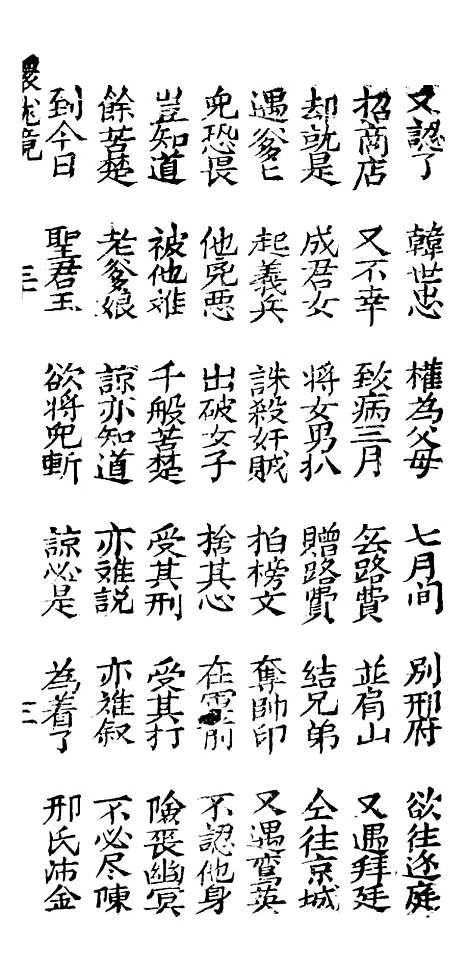 又認了 韓世忠 權為父母 七月间 別邢府 欲往边庭
招商店 又不幸 致病三月 無路費 並肩山 又遇拜廷
却就是 成君女 将女男扒 贈路費 結兄弟 仝往京城
遇爹〻 起義兵 誅殺奸賊 拍榜文 奪帥印 又遇鸞英
児恐畏 他児悪 出破女子 捨其心 在 前 不認他身
豈知道 被他难 千般苦楚 受其刑 受其打 險丧幽冥
餘苦楚 老爹娘 諒亦知道 亦难説 亦难叙 不必尽陳
到今日 聖君王 欲将児斬 諒必是 為着了 邢氏沛金
三 三